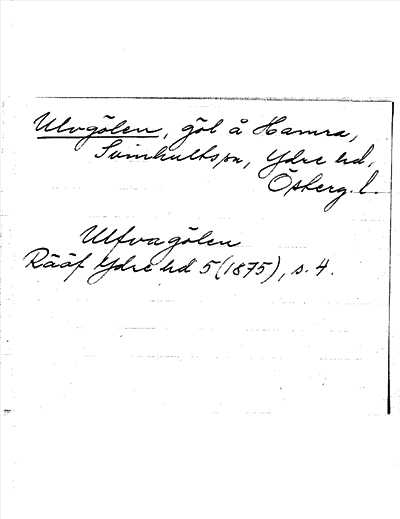 Ulvgölen, göl å Hamra,
Svinhults sn, Ydre hd,
Österg. l.
Ulfvagölen
Rääf Ydre hd 5 (1875), s. 4.